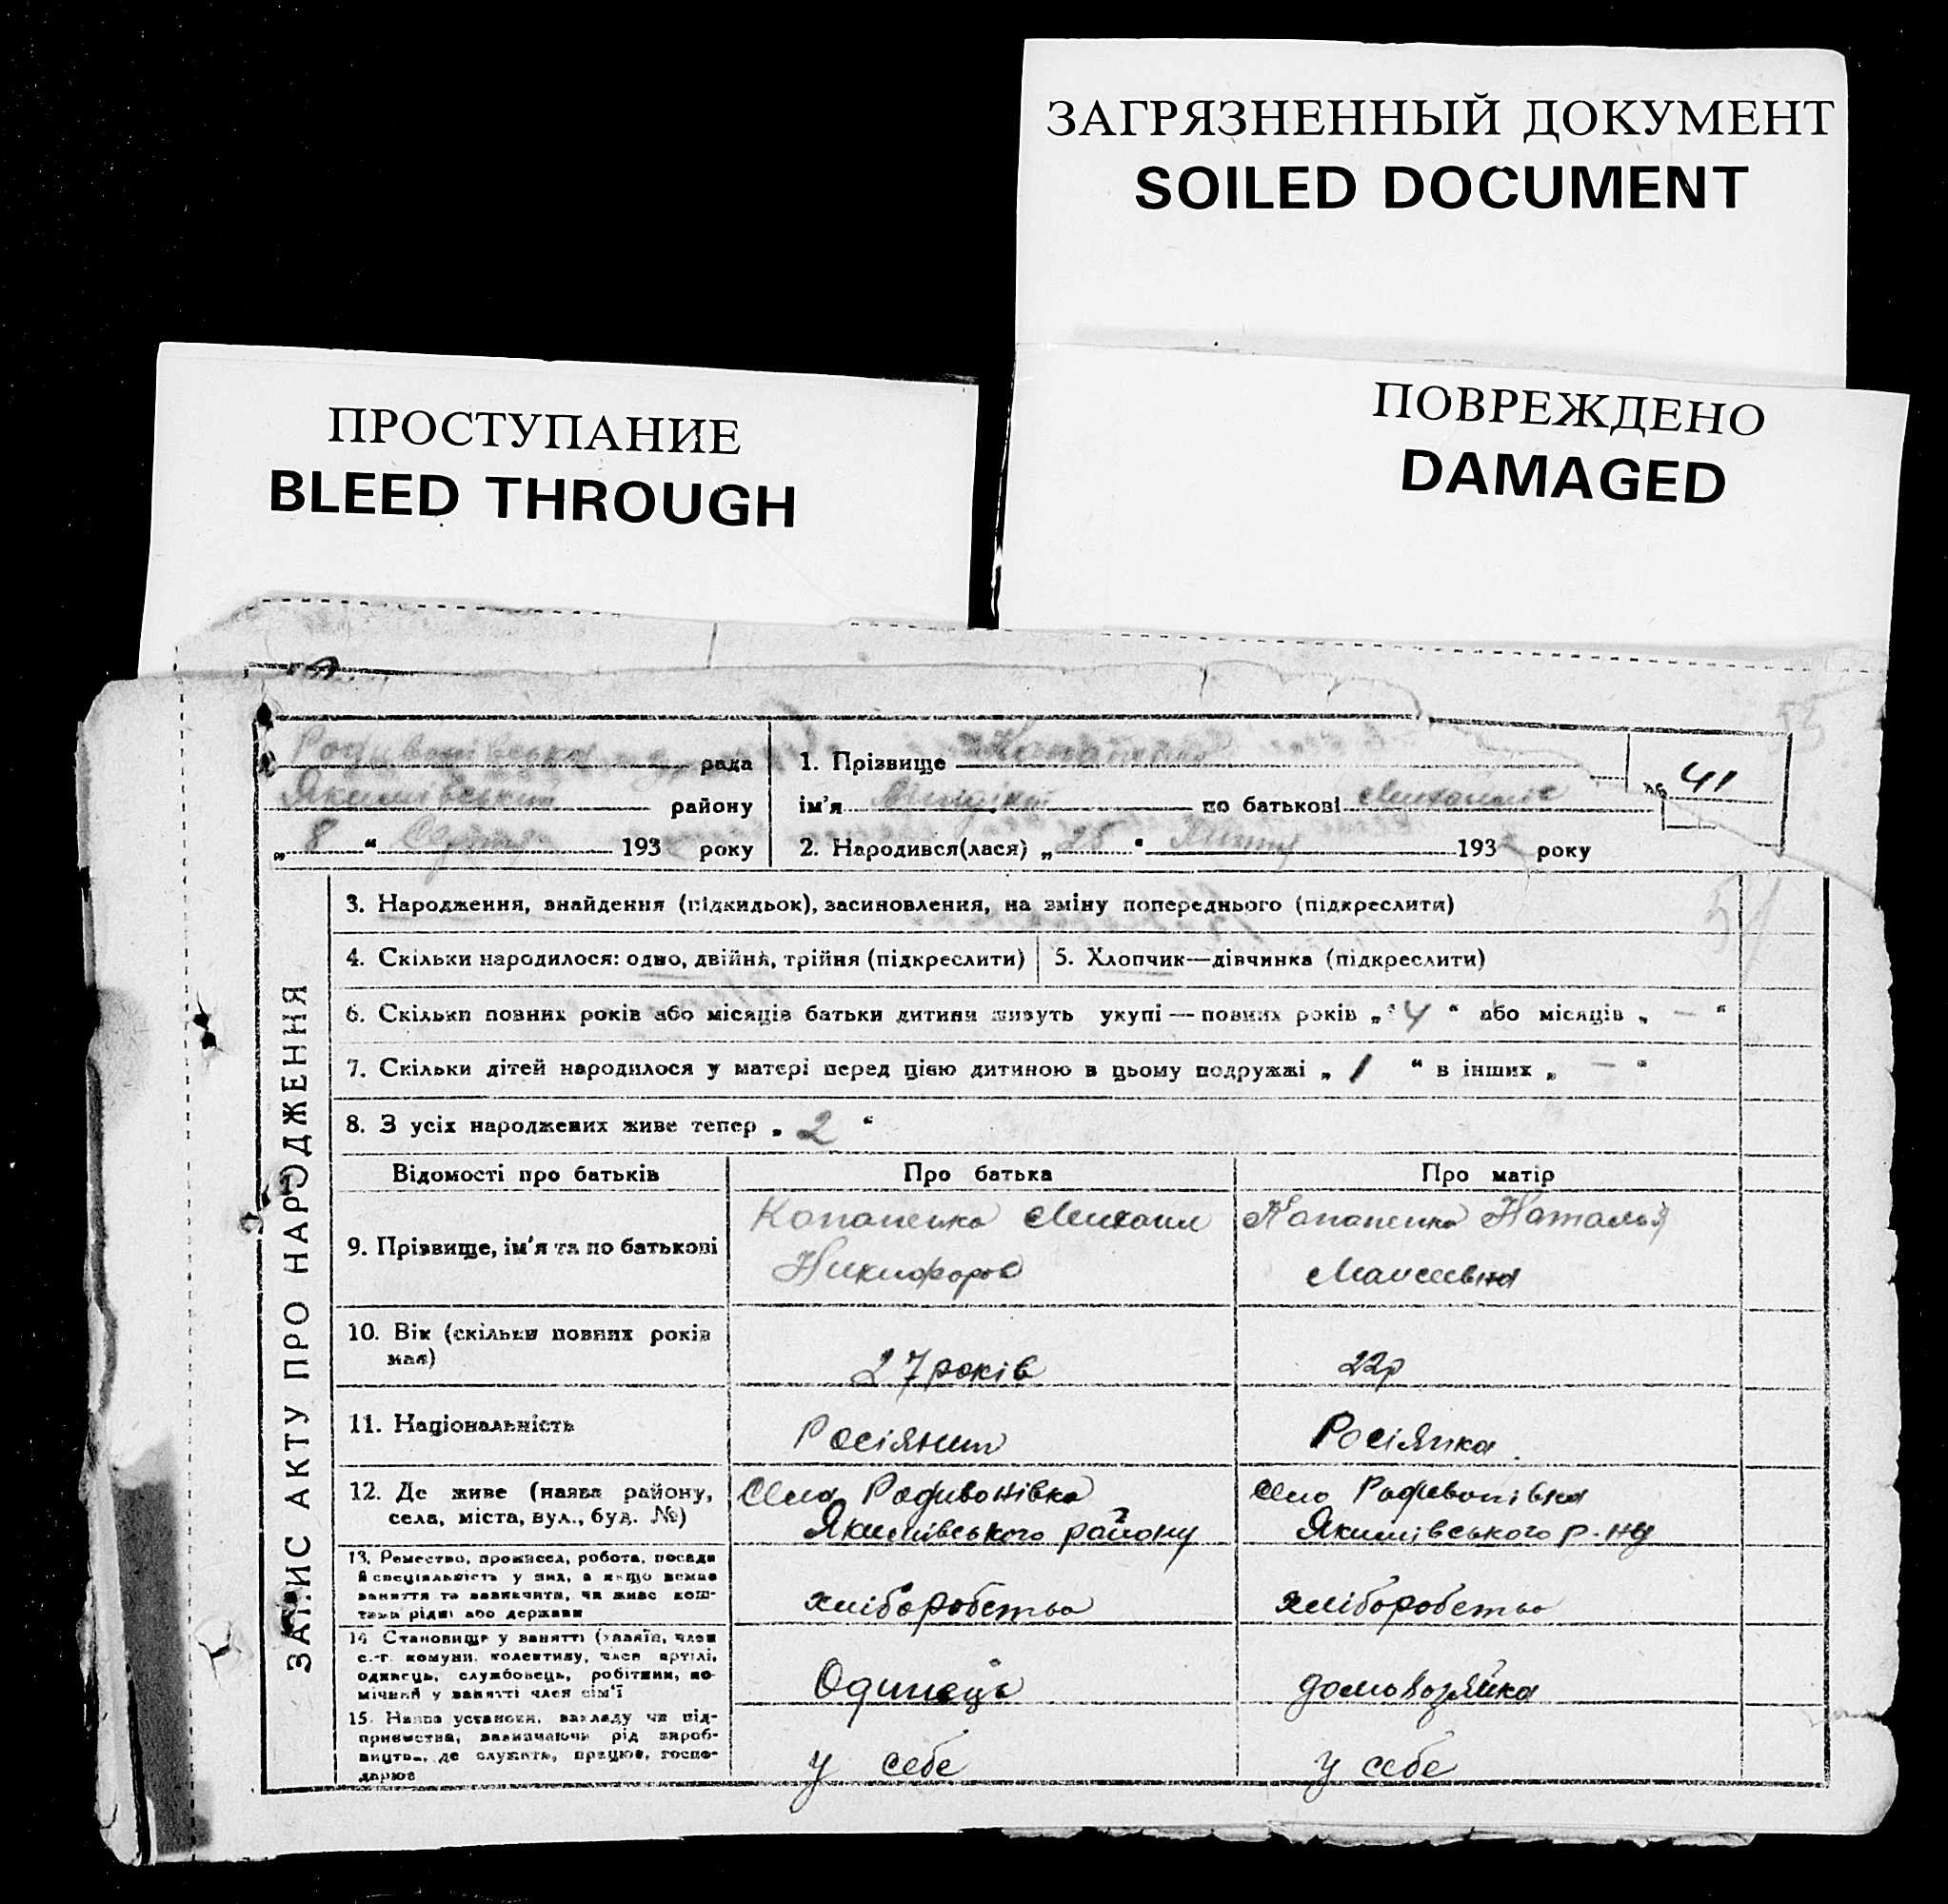 ЗАГРЯЗНЕННЫЙ ДОКУМЕНТ
SOILED DOCUMENT
ПРОСТУПАНИЕ
BLEED THROUGH
ПОВРЕЖДЕНО
DAMAGED
ЗАПИС АКТУ ПРО НАРОДЖЕННЯ
Родивонівська рада
Якимівський району
„ 8 “ 193 року
1. Прізвище
№ 41
ім'я по батькові
2. Народився(лася) „ 25 “ 193 року
3. Народження, знайдення (підкидьок), засиновлення, на зміну попереднього (підкреслити)
4. Скільки народилося: одно, двійня, трійня (підкреслити)
5. Хлопчик—дівчинка (підкреслити)
6. Скільки повних років або місяців батьки дитини живуть укупі — повних років „ 4 “ або місяців „ — “
7. Скільки дітей народилося у матері перед цією дитиною в цьому подружжі „ 1 “ в інших „ — “
8. З усіх народжених живе тепер „ 2 “
Відомості про батьків Про батька Про матір
9. Прізвище, ім'я та по батькові
Копаненко Михаил
Никифоров
Копаненко Наталья
Моисеевна
10. Вік (скільки повних років
має)
27 років
22р
11. Національність
Росіянин
Росіянка
12. Де живе (назва району,
села, міста, вул., буд. №)
Село Родивонівка
Якимівського району
Село Родивонівка
Якимівського р-ну
13. Ремество, промисел, робота, посада
й спеціяльність у них, а якщо немає
заняття то зазначити, чи живе кош-
тами рідні або держави
хліборобство
хліборобство
14. Становище у занятті (хазяїн, член
с.-г. комуни, колективу, член артілі,
одинець, службовець, робітник, по-
мічний у занятті член сім'ї
Одинець
домохозяйка
15. Назва установи, закладу чи під-
приємства, зазначаючи рід вироб-
ництва, де служить, працює, госпо-
дарює
у себе
у себе